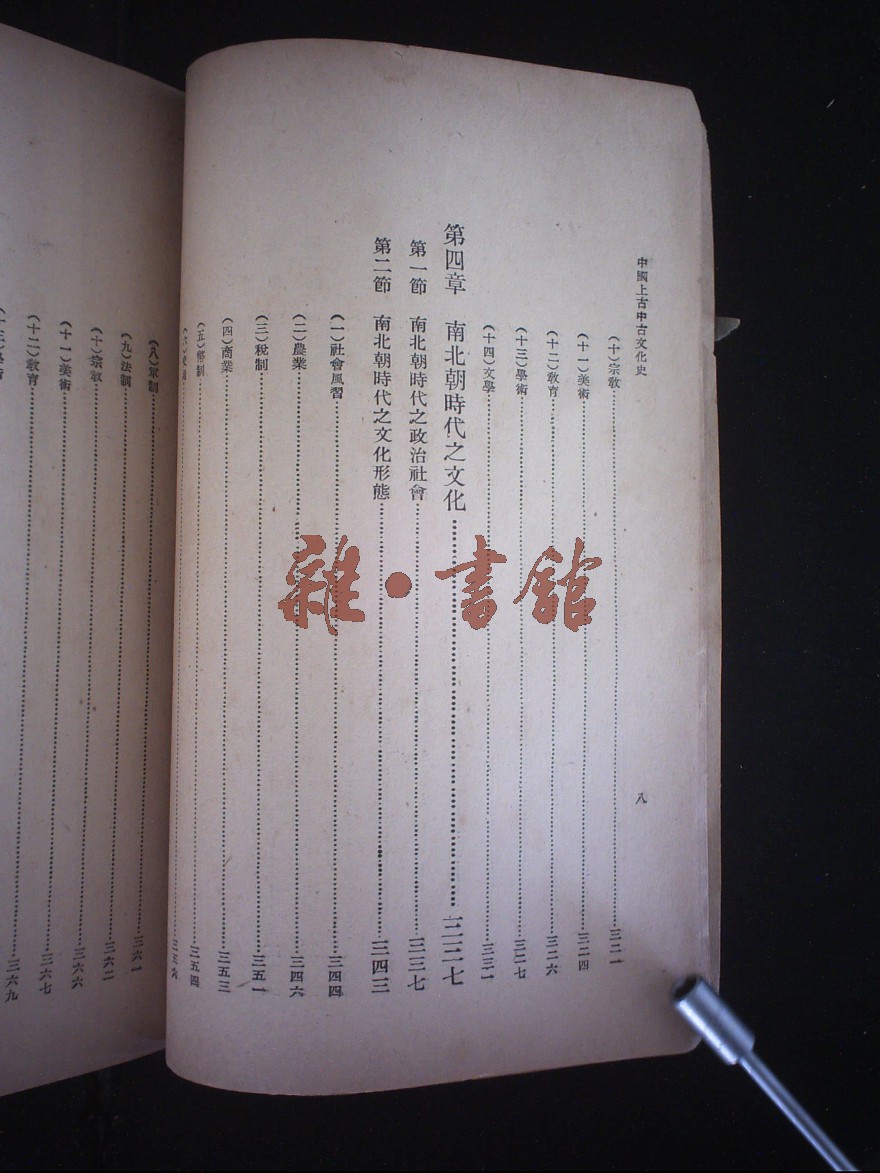 中國上古中古文化史　八
（十）宗教……三二一
（十一）美術……三二四
（十二）教育……三二六
（十三）學術……三二七
（十四）文學……三三一
第四章　南北朝時代之文化……三三七
第一節　南北朝時代之政治社會……三三七
第二節　南北朝時代之文化形態……三四三
（一）社會風習……三四四
（二）農業……三四六
（三）稅制……三五一
（四）商業……三五三
（五）幣制……三五四
（六）……三五六
（八）軍制……三六一
（九）法制……三六二
（十）宗教……三六六
（十一）美術……三六七
（十二）教育……三六九
雜•書館